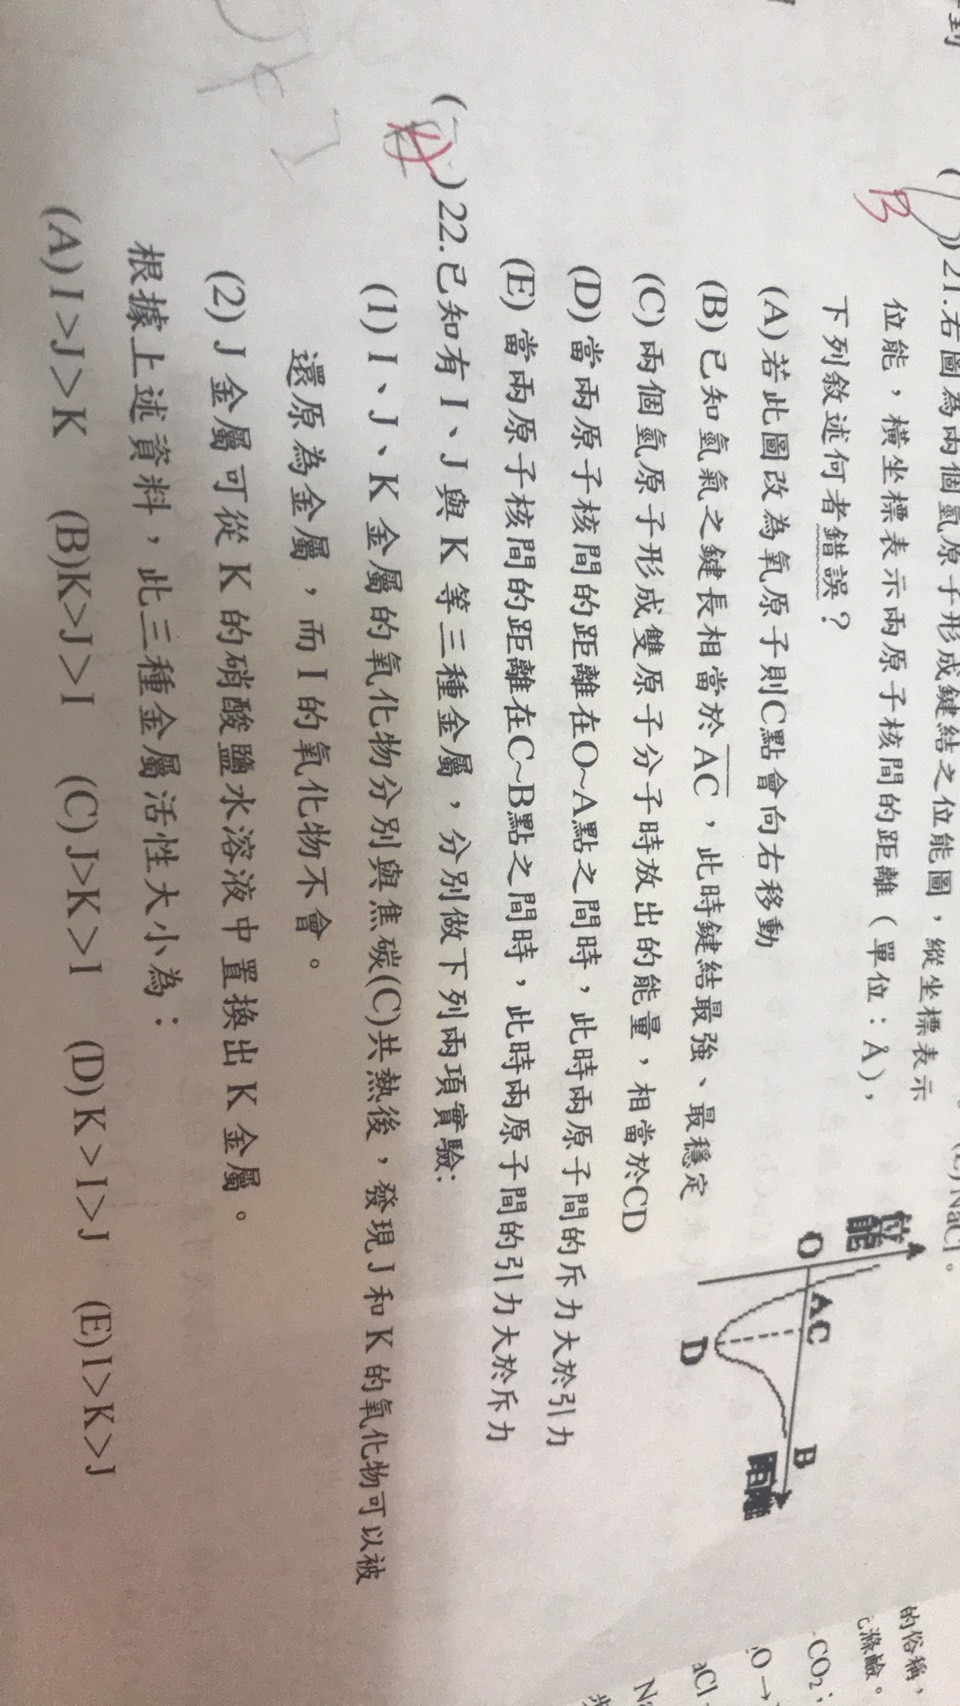 21.右圖為兩個氫原子形成鍵結之位能圖，縱坐標表示
位能，橫坐標表示兩原子核間的距離（單位：Å），
下列敘述何者錯誤？
(A) 若此圖改為氧原子則C點會向右移動
(B) 已知氫氣之鍵長相當於AC，此時鍵結最強、最穩定
(C) 兩個氫原子形成雙原子分子時放出的能量，相當於CD
(D) 當兩原子核間的距離在O~A點之間時，此時兩原子間的斥力大於引力
(E) 當兩原子核間的距離在C~B點之間時，此時兩原子間的引力大於斥力
B
位能
O
A C
B
D
距離
( )22.已知有 I、J 與 K 等三種金屬，分別做下列兩項實驗:
(1) I、J、K 金屬的氧化物分別與焦碳(C)共熱後，發現 J 和 K 的氧化物可以被
還原為金屬，而 I 的氧化物不會。
(2) J 金屬可從 K 的硝酸鹽水溶液中置換出 K 金屬。
根據上述資料，此三種金屬活性大小為：
(A) I＞J＞K (B)K＞J＞I (C) J＞K＞I (D) K＞I＞J (E) I＞K＞J
的俗稱，
CO₂；
NaCl。